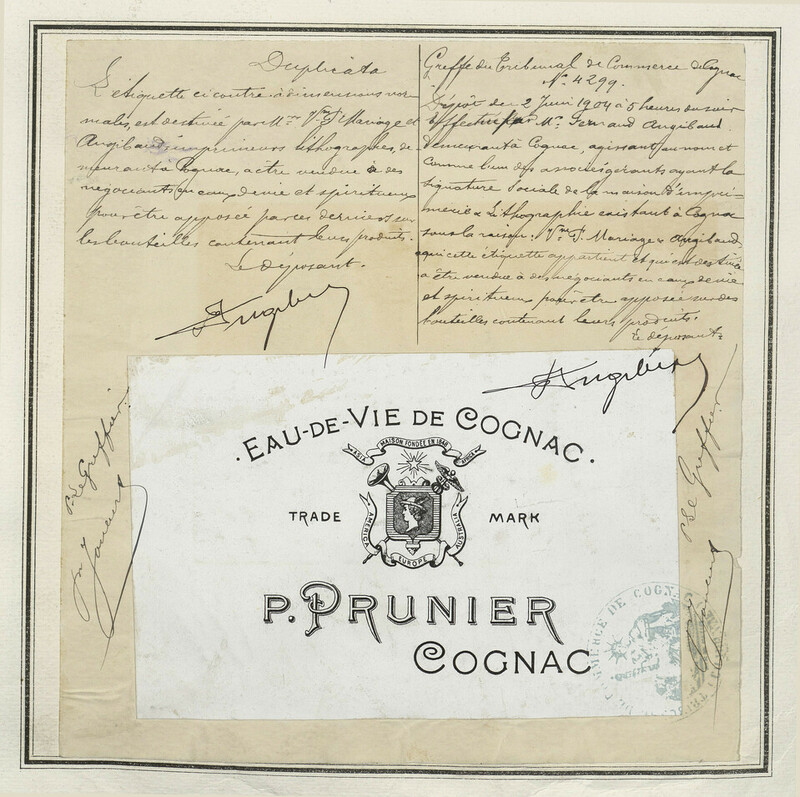 Duplicata
L'étiquette ci contre, à dimensions nor
males, est destinée par Mrs Vve P. Mariage et
Angibaud, imprimeurs lithographes, de
meurant à Cognac, à être vendue à des
négociants en eaux de vie et spiritueux
pour être apposée par ces derniers sur
les bouteilles contenant leurs produits.
Le déposant.
Greffe du Tribunal de Commerce de Cognac
N° 4299.
Dépôt du 2 Juin 1904 à 5 heures du soir
effectué par Mr Fernand Angibaud
demeurant à Cognac, agissant au nom et
comme l'un des associés gérants ayant la
signature sociale de la maison d'impri
merie & Lithographie existant à Cognac
sous la raison: Vve P. Mariage & Angibaud
à qui cette étiquette appartient et qui est destinée
à être vendue à des négociants en eaux de vie
et spiritueux pour être apposée sur des
bouteilles contenant leurs produits.
Le déposant
P. Le Greffier
P. Le Greffier
EAU-DE-VIE DE COGNAC.
MAISON FONDÉE EN 1848
ASIA AFRICA
TRADE MARK
AMERICA AUSTRALIA
EUROPE
P. PRUNIER
COGNAC
COMMERCE DE COGNAC